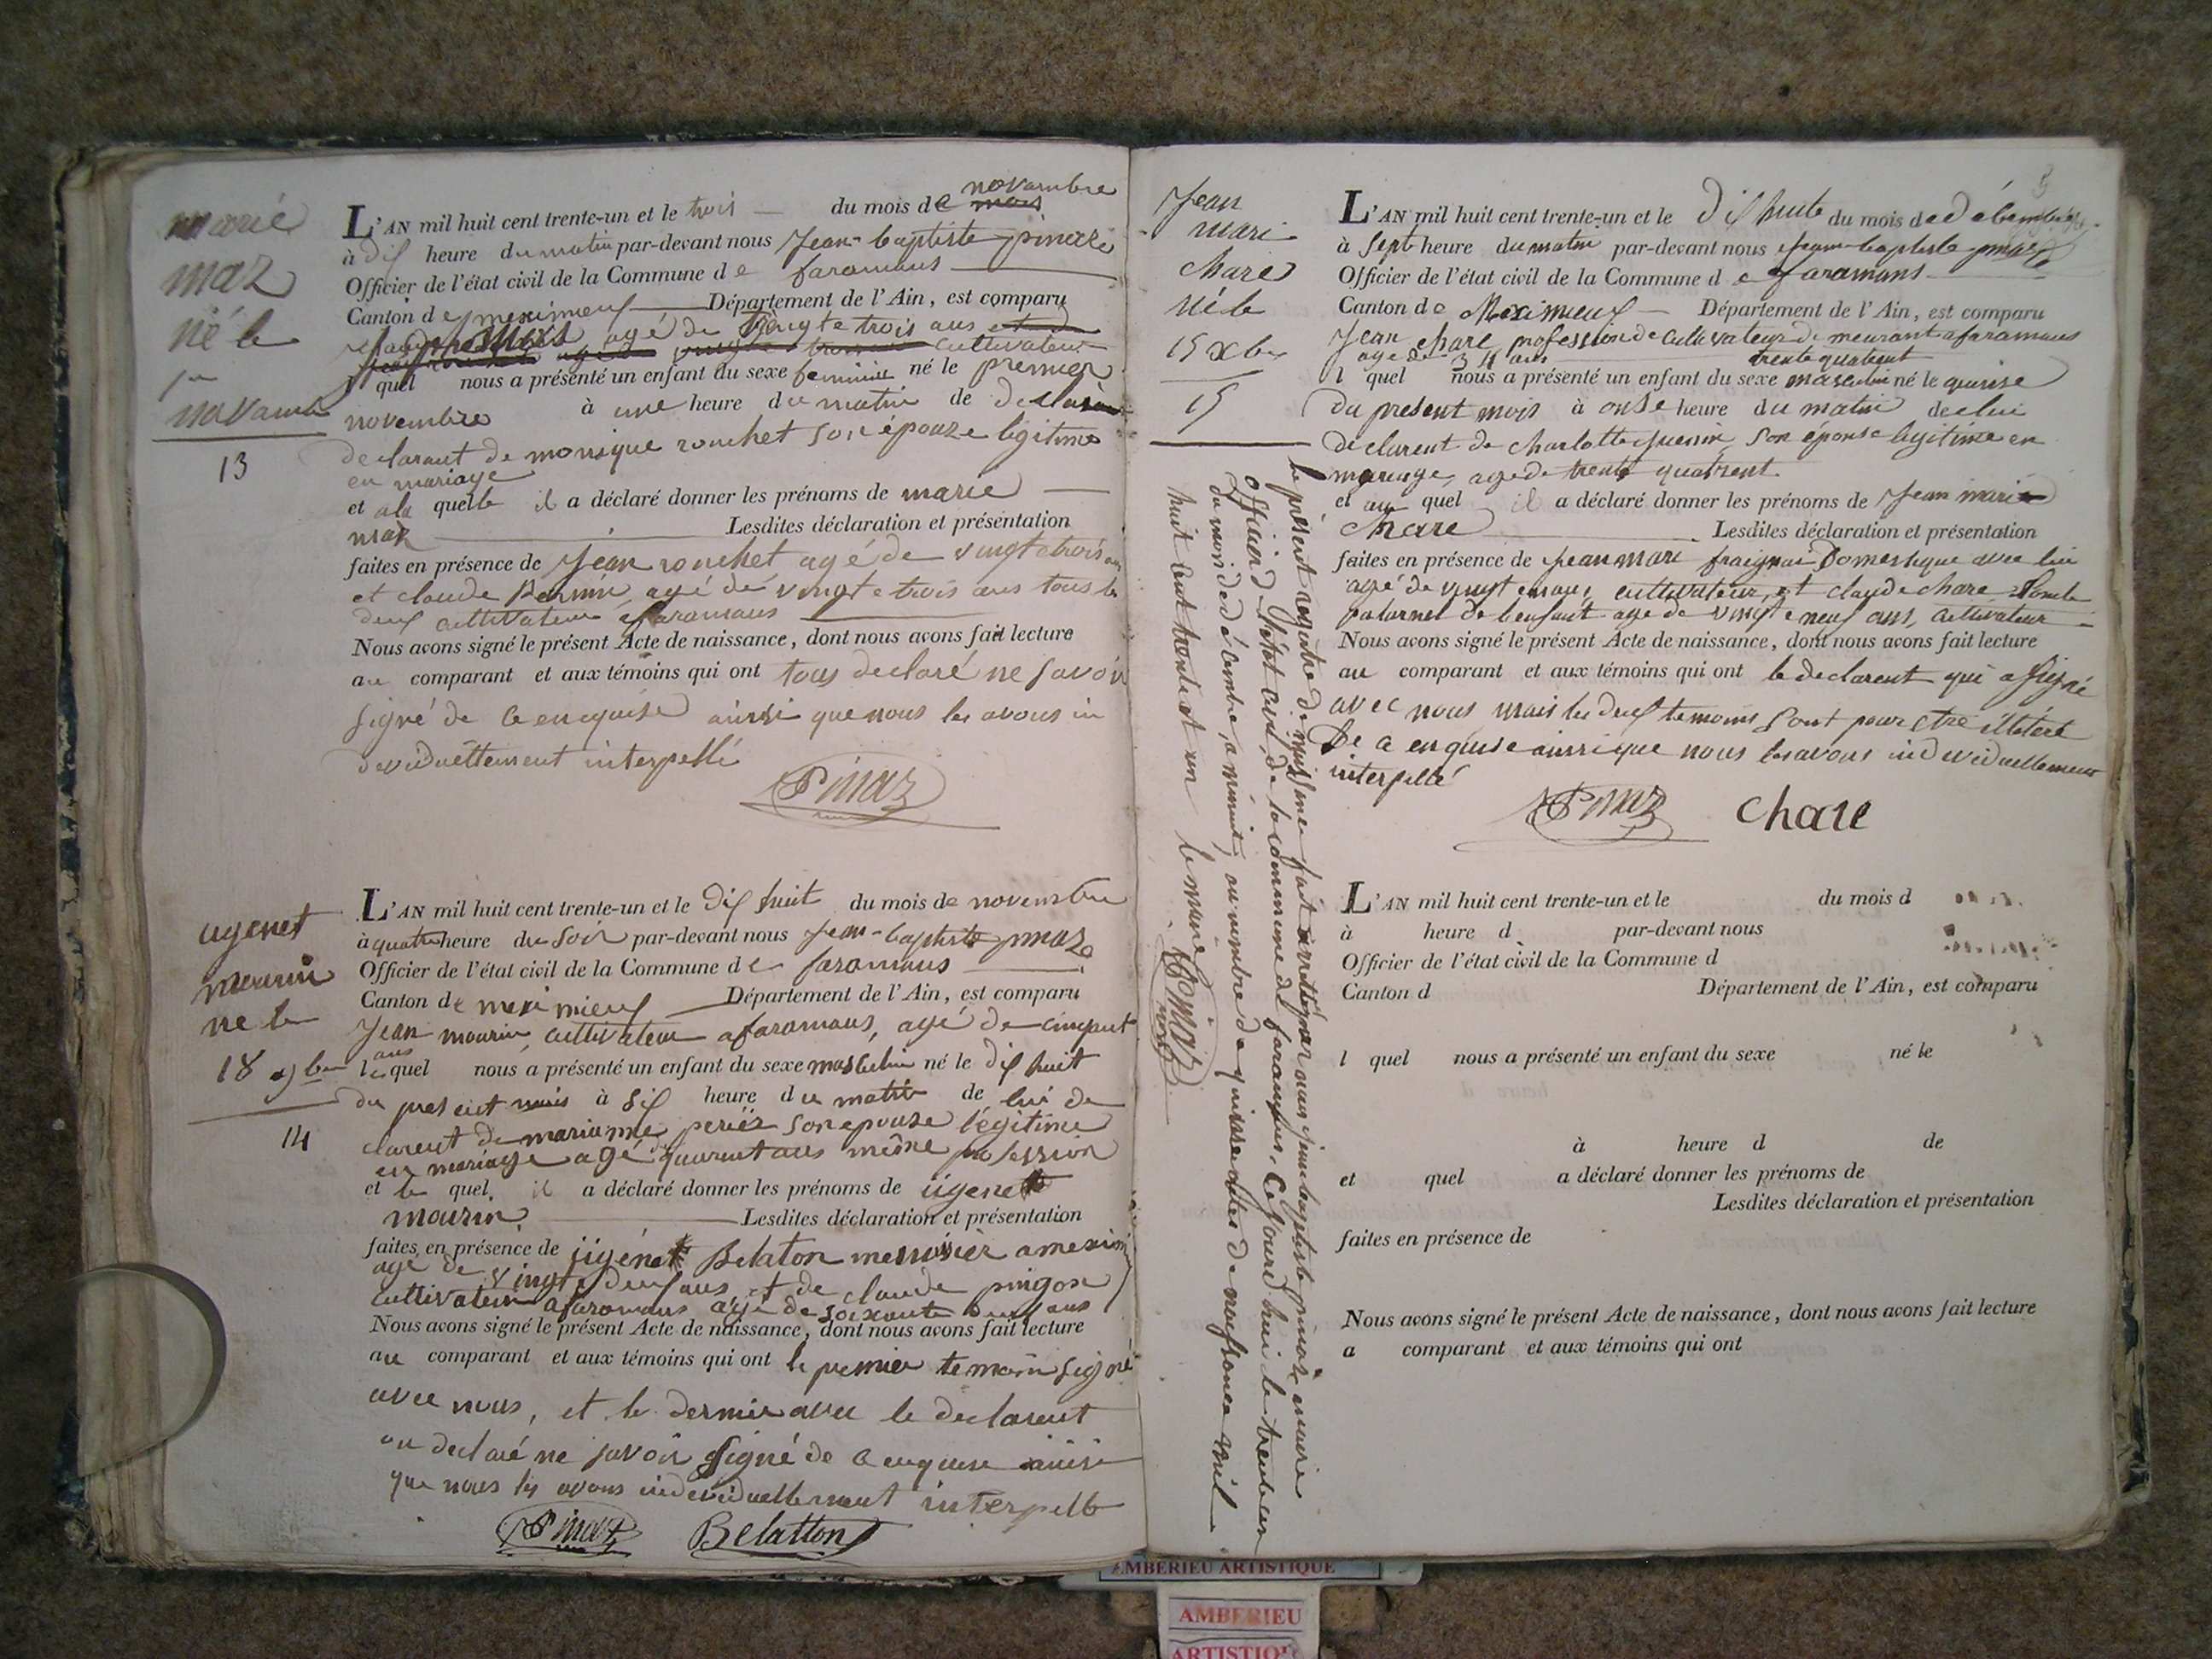 marie
maz
né le
1er
novamb
13
L'AN mil huit cent trente-un et le trois du mois de mars novambre
à dix heure du matin par-devant nous Jean-baptiste pinaz
Officier de l'état civil de la Commune de faramans
Canton de meximieux Département de l'Ain, est comparu
agé de vingt e trois ans cultivateur
l quel nous a présenté un enfant du sexe feminin né le premier
novembre à une heure du matin de
declarant de monique rouchet son epouze légitime
en mariage
et a la quelle il a déclaré donner les prénoms de marie
maz Lesdites déclaration et présentation
faites en présence de Jean rouchet agé de vingt e trois ans
et claude agé de vingt e trois ans tous les
deux cultivateur a faramans
Nous avons signé le présent Acte de naissance, dont nous avons fait lecture
au comparant et aux témoins qui ont tous declaré ne savoir
signé de ce enquise ainsi que nous les avons in
deviduellement interpellé
Pinaz
ugenet
mourin
ne le
18 9ber
14
L'AN mil huit cent trente-un et le dix huit du mois de novembre
à quatre heure du soir par-devant nous Jean-baptiste pinaz
Officier de l'état civil de la Commune de faramans
Canton de meximieux Département de l'Ain, est comparu
Jean mourin cultivateur a faramans, agé de cinquant
ans
le quel nous a présenté un enfant du sexe masculin né le dix huit
du present mois à six heure du matin de lui de
clarent de marianne periér son epouse légitime
en mariage agé quarent ans même profession
et le quel il a déclaré donner les prénoms de ugenet
mourin Lesdites déclaration et présentation
faites en présence de ugénet Belaton menuisier a meximi
agé de vingt e deux ans et de claude pingon
cultivateur a faramans agé de soixante deux ans
Nous avons signé le présent Acte de naissance, dont nous avons fait lecture
au comparant et aux témoins qui ont le premier temoin signé
avec nous, et le dernier avec le declarent
on declaré ne savoir signé de ce enquise ainsi
que nous les avons individuellement interpellé
Pinaz Belatton
Jean
mari
chare
né le
15 xber
15
L'AN mil huit cent trente-un et le dix huite du mois de décembre
à sept heure du matin par-devant nous Jean-baptiste pinaz
Officier de l'état civil de la Commune de faramans
Canton de Meximieux Département de l'Ain, est comparu
Jean chare profession de cultivateur demeurant a faramans
agé de 34 ans
l quel nous a présenté un enfant du sexe masculin né le quinse
du present mois à onse heure du matin de lui
declarent de Charlotte guenin son épouse legitime en
mariage, age de trente
et au quel il a déclaré donner les prénoms de Jean mari
Chare Lesdites déclaration et présentation
faites en présence de Jean mari Domestique avec lui
agé de vingt e ans, cultivateur, et claude chare l'oncle
paternel de l'enfant age de vingt e neuf ans, cultivateur
Nous avons signé le présent Acte de naissance, dont nous avons fait lecture
au comparant et aux témoins qui ont le declarent qui a signé
avec nous mais les deux temoins sont pour etre illétéré
De ce enquise ainsi que nous les avons indeviduellement
interpellé
Pinaz chare
le présent registre de naissance fait arrette par nous jean baptiste pinaz maire
officier d l'état civil de la commune de faramans, ce jourd'hui le trente un
du mois de décembre, a minuit, au nombre de quinse actes de naissance mil
huit cent trente et un le maire Pinaz
L'AN mil huit cent trente-un et le du mois d
à heure d par-devant nous
Officier de l'état civil de la Commune d
Canton d Département de l'Ain, est comparu
l quel nous a présenté un enfant du sexe né le
à heure d de
et quel a déclaré donner les prénoms de
Lesdites déclaration et présentation
faites en présence de
Nous avons signé le présent Acte de naissance, dont nous avons fait lecture
a comparant et aux témoins qui ont
AMBERIEU ARTISTIQUE
AMBERIEU
ARTISTIQUE